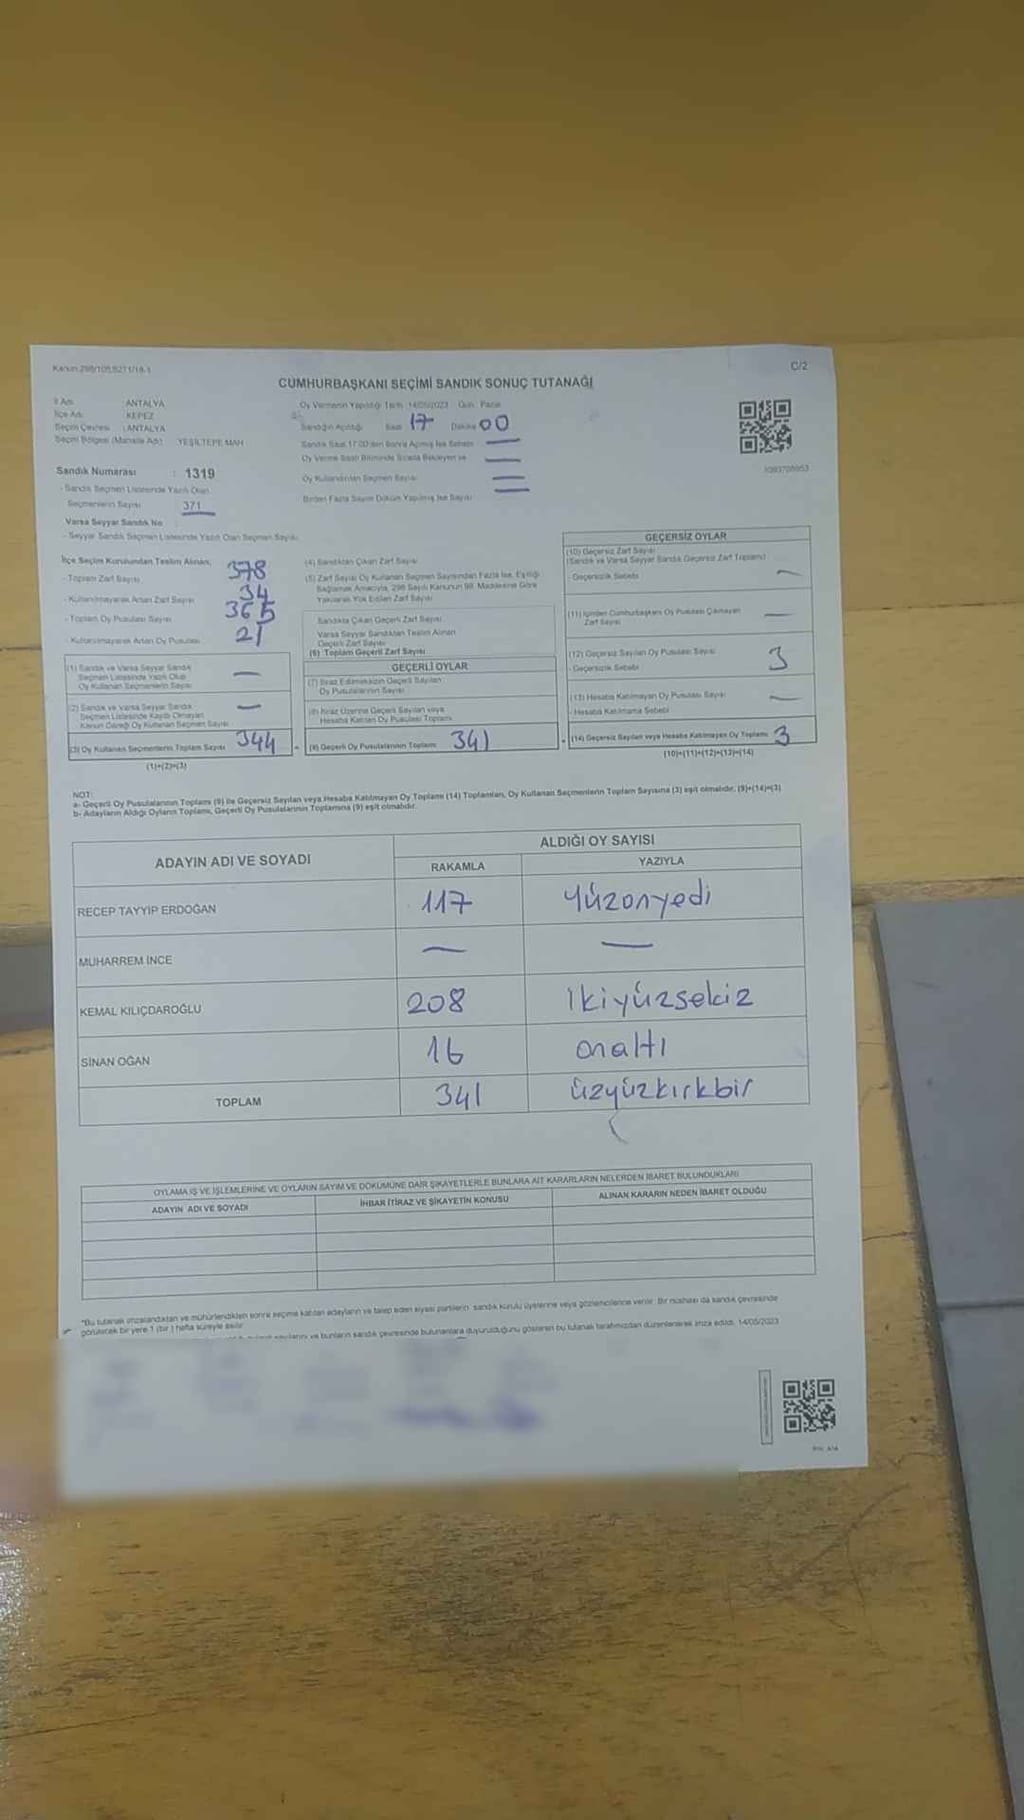 Kanun 298/105,6271/18-1
C/2
CUMHURBAŞKANI SEÇİMİ SANDIK SONUÇ TUTANAĞI
İl Adı ANTALYA
İlçe Adı KEPEZ
Seçim Çevresi : ANTALYA
Seçim Bölgesi (Mahalle Adı) YEŞİLTEPE MAH
Sandık Numarası : 1319
- Sandık Seçmen Listesinde Yazılı Olan
Seçmenlerin Sayısı 371
Varsa Seyyar Sandık No
- Seyyar Sandık Seçmen Listesinde Yazılı Olan Seçmen Sayısı
Oy Vermenin Yapıldığı Tarih 14/05/2023 Gün: Pazar
Sandığın Açıldığı Saat 17 Dakika 00
Sandık Saat 17:00'den Sonra Açılmış İse Sebebi —
Oy Verme Saati Bitiminde Sırada Bekleyen ve —
Oy Kullandırılan Seçmen Sayısı —
Birden Fazla Sayım Döküm Yapılmış İse Sayısı —
İlçe Seçim Kurulundan Teslim Alınan;
- Toplam Zarf Sayısı 378
- Kullanılmayarak Artan Zarf Sayısı 34
- Toplam Oy Pusulası Sayısı 365
- Kullanılmayarak Artan Oy Pusulası 21
(1) Sandık ve Varsa Seyyar Sandık
Seçmen Listesinde Yazılı Olup
Oy Kullanan Seçmenlerin Sayısı —
(2) Sandık ve Varsa Seyyar Sandık
Seçmen Listesinde Kayıtlı Olmayan
Kanun Gereği Oy Kullanan Seçmen Sayısı —
(3) Oy Kullanan Seçmenlerin Toplam Sayısı 344
(1)+(2)=(3)
(4) Sandıktan Çıkan Zarf Sayısı
(5) Zarf Sayısı Oy Kullanan Seçmen Sayısından Fazla İse, Eşitliği
Sağlamak Amacıyla, 298 Sayılı Kanunun 98. Maddesine Göre
Yakılarak Yok Edilen Zarf Sayısı
Sandıkta Çıkan Geçerli Zarf Sayısı
Varsa Seyyar Sandıktan Teslim Alınan
Geçerli Zarf Sayısı
(6) Toplam Geçerli Zarf Sayısı
GEÇERLİ OYLAR
(7) İtiraz Edilmeksizin Geçerli Sayılan
Oy Pusulalarının Sayısı
(8) İtiraz Üzerine Geçerli Sayılan veya
Hesaba Katılan Oy Pusulası Toplamı
(9) Geçerli Oy Pusulalarının Toplamı 341
GEÇERSİZ OYLAR
(10) Geçersiz Zarf Sayısı
(Sandık ve Varsa Seyyar Sandık Geçersiz Zarf Toplamı)
- Geçersizlik Sebebi —
(11) İçinden Cumhurbaşkanı Oy Pusulası Çıkmayan
Zarf Sayısı —
(12) Geçersiz Sayılan Oy Pusulası Sayısı 3
- Geçersizlik Sebebi
(13) Hesaba Katılmayan Oy Pusulası Sayısı —
- Hesaba Katılmama Sebebi
(14) Geçersiz Sayılan veya Hesaba Katılmayan Oy Toplamı 3
(10)+(11)+(12)+(13)=(14)
NOT:
a- Geçerli Oy Pusulalarının Toplamı (9) ile Geçersiz Sayılan veya Hesaba Katılmayan Oy Toplamı (14) Toplamları, Oy Kullanan Seçmenlerin Toplam Sayısına (3) eşit olmalıdır. (9)+(14)=(3)
b- Adayların Aldığı Oyların Toplamı, Geçerli Oy Pusulalarının Toplamına (9) eşit olmalıdır.
ADAYIN ADI VE SOYADI
ALDIĞI OY SAYISI
RAKAMLA YAZIYLA
RECEP TAYYİP ERDOĞAN 117 Yüzonyedi
MUHARREM İNCE — —
KEMAL KILIÇDAROĞLU 208 İkiyüzsekiz
SİNAN OĞAN 16 onaltı
TOPLAM 341 üzyüzkırkbir
OYLAMA İŞ VE İŞLEMLERİNE VE OYLARIN SAYIM VE DÖKÜMÜNE DAİR ŞİKAYETLERLE BUNLARA AİT KARARLARIN NELERDEN İBARET BULUNDUKLARI
ADAYIN ADI VE SOYADI İHBAR İTİRAZ VE ŞİKAYETİN KONUSU ALINAN KARARIN NEDEN İBARET OLDUĞU
"Bu tutanak imzalandıktan ve mühürlendikten sonra seçime katılan adayların ve talep eden siyasi partilerin sandık kurulu üyelerine veya gözlemcilerine verilir. Bir nüshası da sandık çevresinde
görülecek bir yere 1 (bir) hafta süreyle asılır.
ve bunların sandık çevresinde bulunanlara duyurulduğunu gösteren bu tutanak tarafımızdan düzenlenerek imza edildi. 14/05/2023